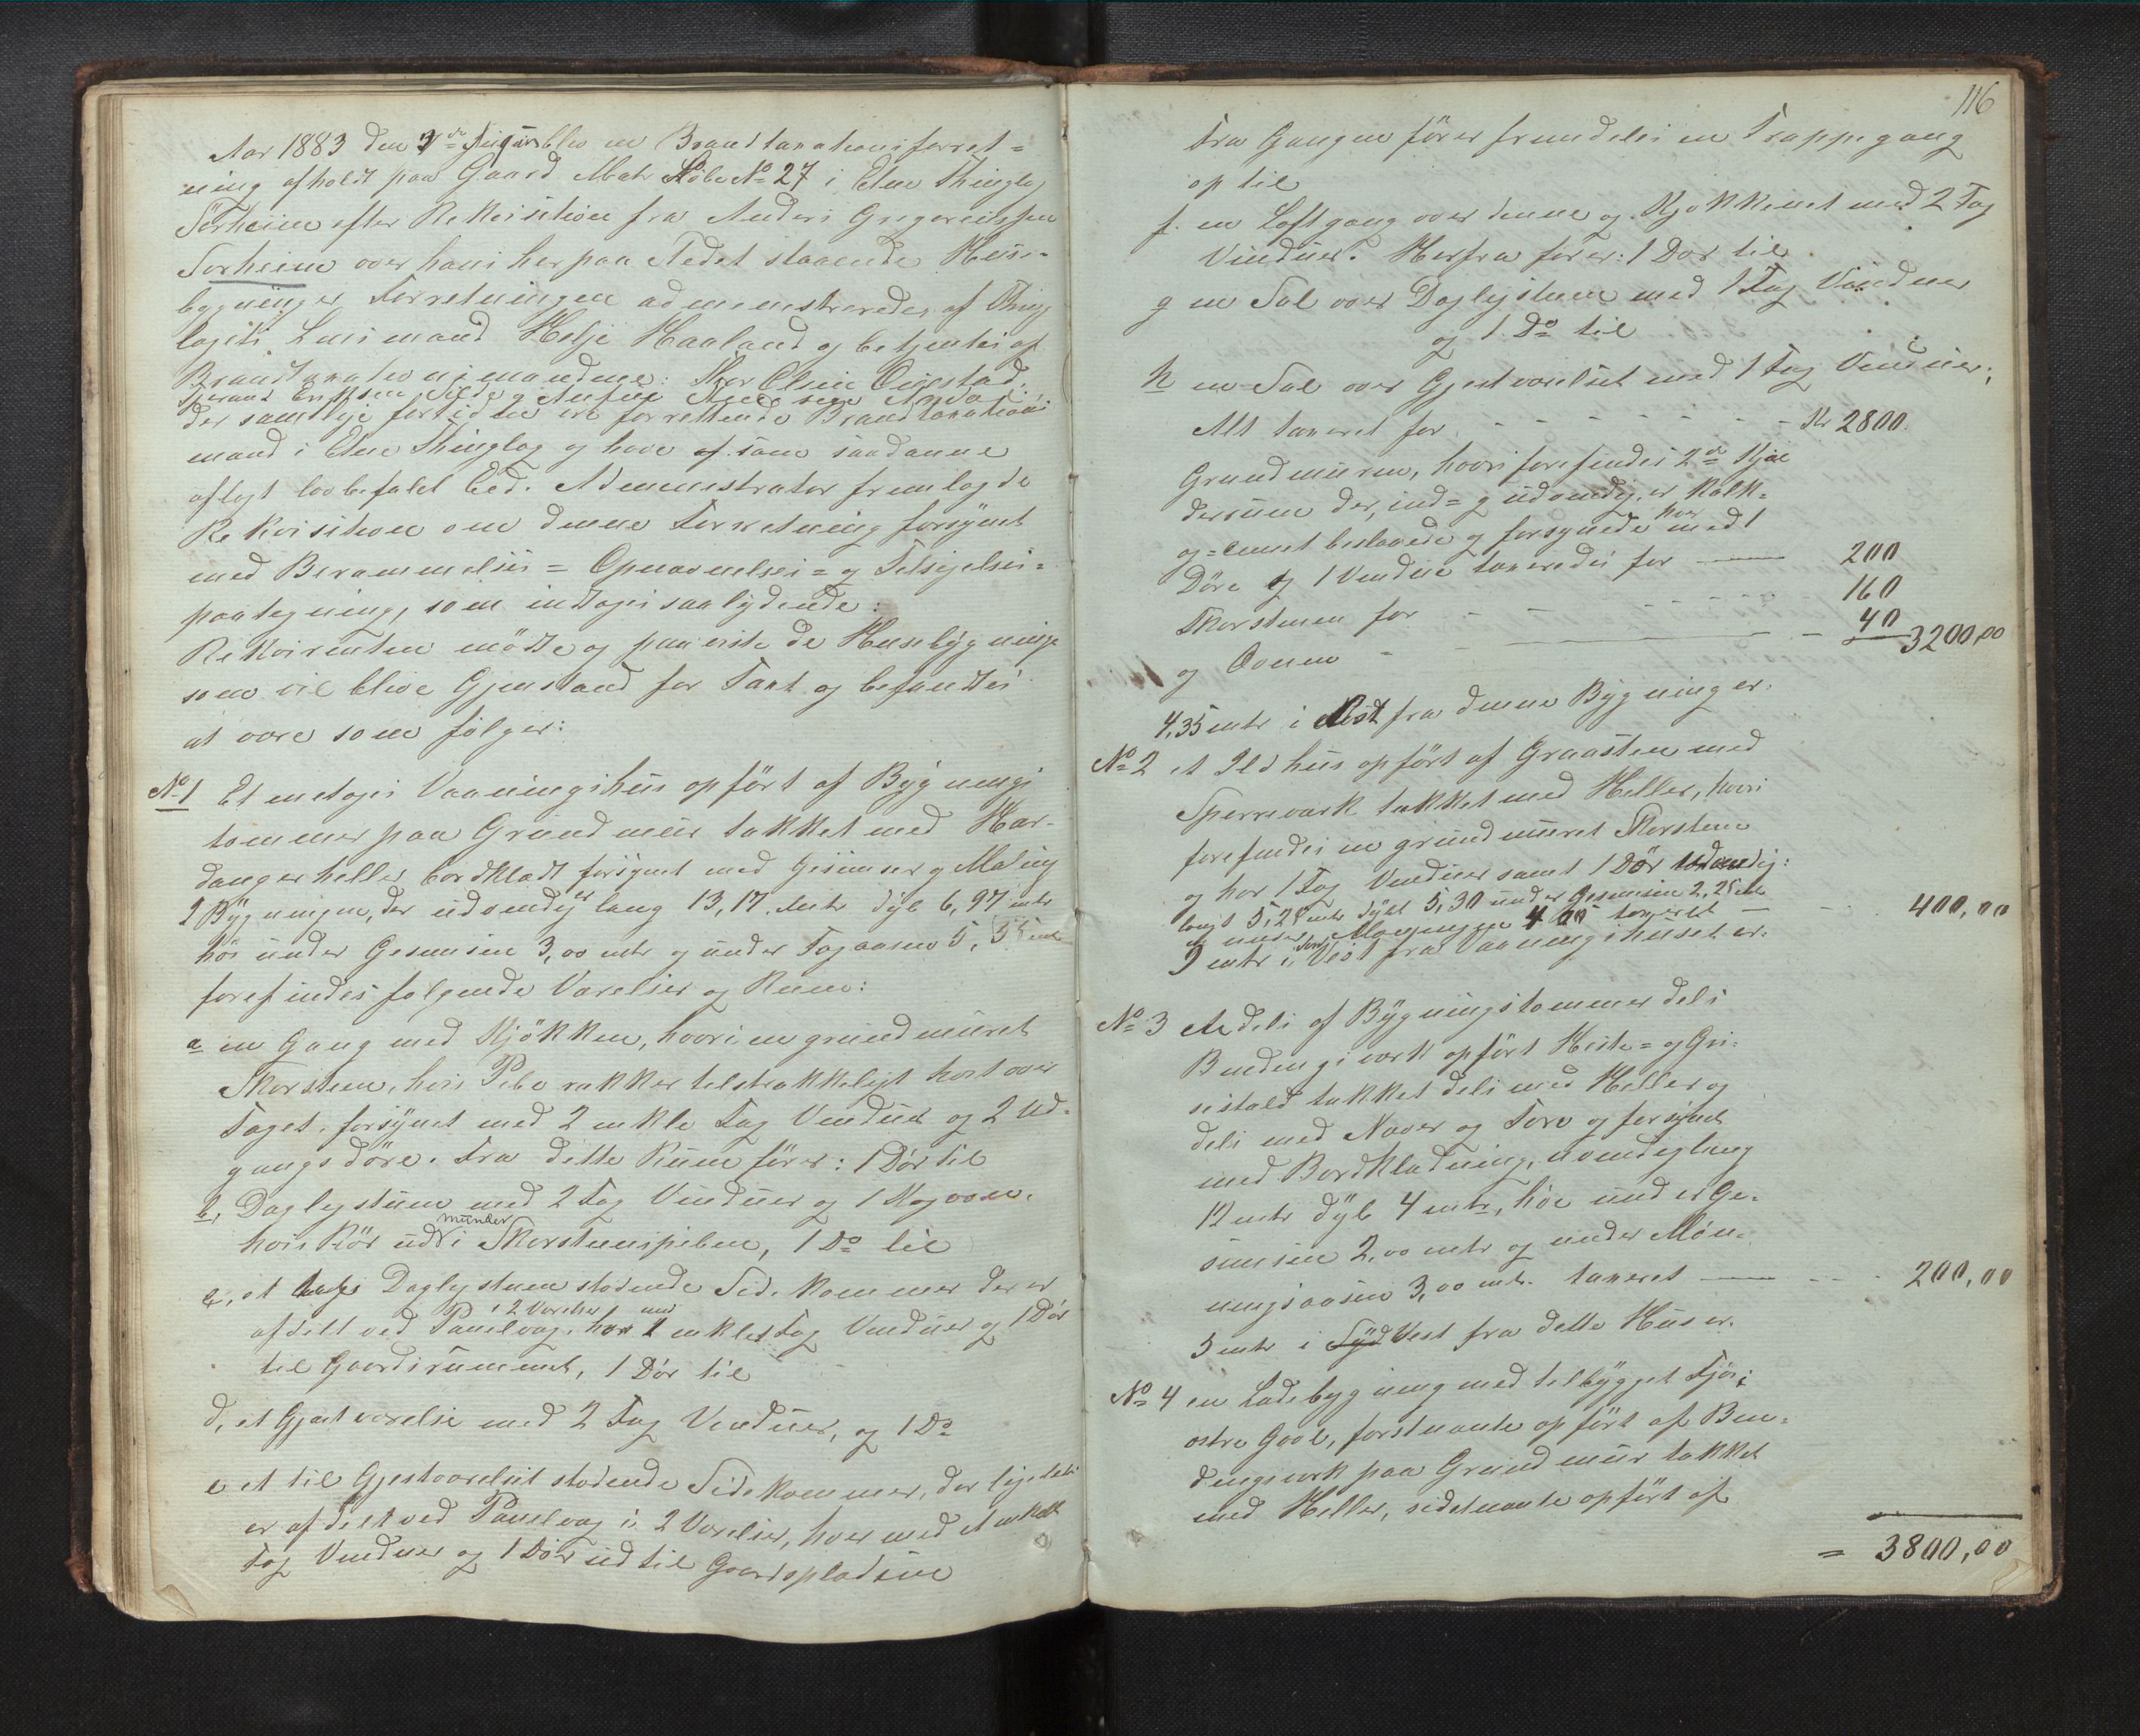 Aar 1883 den 3de August blev en Brandtaxationsforret=
ning afholdt paa Gaard Matr Løbe No 27 i Etne Thinglag
Sørheim efter Rekvisition fra Anders Gregoriussen
Sørheim over hans her paa Stedet staaende Huse-
bygninger. Forretningen administreredes af Thing
lagets Lensmand Helje Haaland og betjentes af
Brandtaxationsmændene: Thor Olsen Øigestad,
der samtlige fortiden ere forrettende Brandtaxations
mænd i Etne Thinglag og have som saadanne
aflagt lovbefalet Eed. Administrator fremlagde
Rekvisition om denne Forretning forsynet
med Berammelses= Opnævnelses= og Tilsigelses=
paategning, som indtages saalydende:
Rekvirenten mødte og paaviste de Husebygninge
som vil blive Gjenstand for Taxt og befandtes
at være som følger:
No 1 Et enetages Vaaningshus opført af Bygnings
tømmer paa Grundmur tækket med Har-
dangerheller bordklædt forsynet med Gesimser og Maling
Bygningen, der udvendig er lang 13,17 Mtr dyb 6,97 mtr
høi under Gesimsen 3,00 mtr og under Tagaasen 5,55 mtr
forefindes følgende Værelser og Rum:
a en Gang med Kjøkken, hvori en grundmuret
Skorsten, hvis Pibe rækker tilstrækkeligt høit over
Taget, forsynet med 2 enkle Fag Vinduer og 2 Ud-
gangsdøre. Fra dette Rum fører: 1 Dør til
b, Daglystuen med 2 Fag Vinduer og 1 Kogovn.
hvis Rør udmunder i Skorstenspiben, 1 Do til
c, et Daglystuen stødende Sidekammer der er
afdelt ved Panelvæg i 2 Værelser, har enkle Fag Vinduer og 1 Dør
til Gaardsrummet, 1 Dør til
d, et Gjestværelse med 2 Fag Vinduer, og 1 Do
e et til Gjestværelset stødende Sidekammer, der ligeledes
er afdelt ved Panelvæg i 2 Værelser, hver med et enkelt
Fag Vinduer og 1 Dør ud til Gaardspladsen
116
Fra Gangen fører fremdeles en Trappegang
op til
f. en Loftgang over denne og Kjøkkenet med 2 Fag
Vinduer. Herfra fører: 1 Dør til
g en Sal over Daglystuen med 1 Fag Vinduer
og 1 Do til
h en Sal over Gjestværelset med 1 Fag Vinduer;
Alt taxeret for - - - - - - Kr 2800.
Grundmuren, hvori forefindes 2de Kjæl
derrum der, ind= og udvendig, er kalk=
og=cement beslaaede og forsynede hver med 1
Døre og 1 Vindue taxeredes for — 200
Skorstenen for - - - - 160
og Ovnen - - - 40 3200,00
4,35 mtr i Øst fra denne Bygning er:
No 2 et Ildhus opført af Graasten med
Sperreværk tækket med Heller, hvori
forefindes en grundmuret Skorsten
og har 1 Fag Vinduer samt 1 Dør udvendig:
langt 5,28 mtr dybt 5,30 under Gesimsen 2,25 mtr
og under Mønningen 4,00 taxeret — 400,00
9 mtr i Vest fra Vaaningshuset er.
No 3 dels af Bygningstømmer dels
Bindingsværk opført Heste= og Gri-
sestald tækket dels med Heller og
dels med Næver og Torv og forsynet
med Bordklædning, udvendig lang
12 mtr dyb 4 mtr, høi under Ge-
simsen 2,00 mtr og under Møn-
ningsaasen 3,00 mtr. taxeret — 200,00
5 mtr i Syd Vest fra dette Hus er.
No 4 en Ladebygning med tilbygget Fjøs;
østre Gavl, forstnævnte opført af Bin-
dingsværk paa Grundmur tækket
med Heller, sidstnævnte opført af
= 3800,00